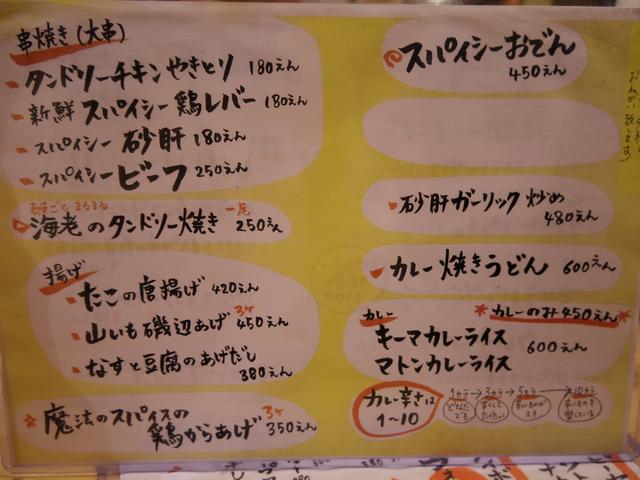 串焼き(大串)
タンドリーチキンやきとり 180えん
新鮮 スパイシー鶏レバー 180えん
スパイシー 砂肝 180えん
スパイシービーフ 250えん
あたまごと まるまる
海老のタンドリー焼き 一尾 250えん
揚げ
たこの唐揚げ 420えん
山いも磯辺あげ 3ヶ 450えん
なすと豆腐のあげだし
380えん
魔法のスパイスの
鶏からあげ 3ヶ 350えん
スパイシーおでん
450えん
砂肝ガーリック炒め
480えん
カレー焼きうどん 600えん
カレー
*カレーのみ450えん*
キーマカレーライス
マトンカレーライス
600えん
カレー辛さは
1〜10
1カラ→3カラ→5カラ→10カラ
どなたでも
辛いものがスキ
辛いものを愛している